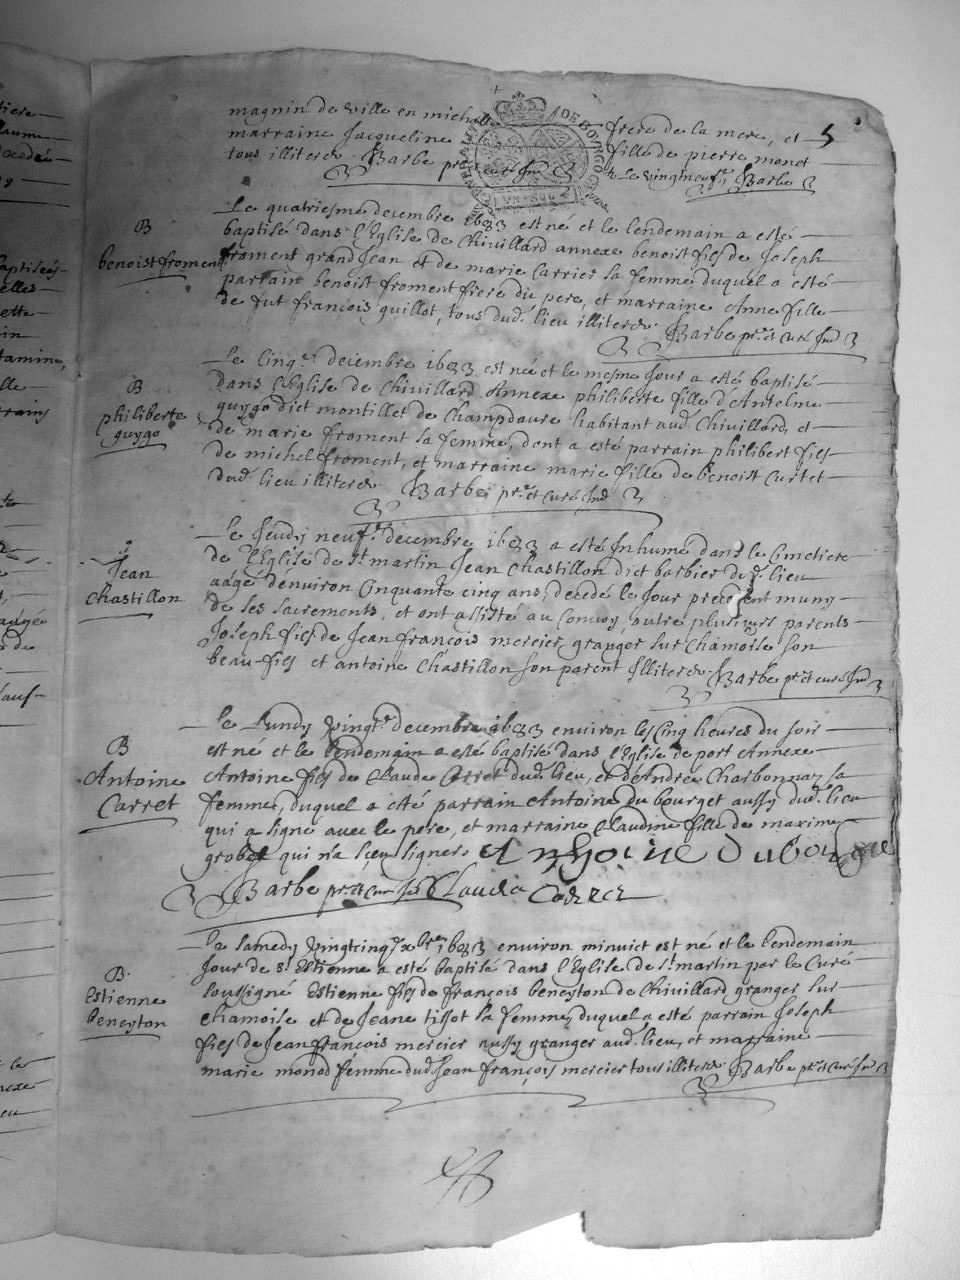 5
magnin de ville en michaille frere de la mere, et
marraine Jacqueline fille de pierre monet
tous illiteres Barbe le vingtneufe Barbe
DE BOURGOGNE
B
benoist froment
Le quatriesme decembre 1683 est né et le lendemain a esté
baptisé dans l'Eglise de Chivillard annexe benoist fils de Joseph
froment grand Jean et de marie Carrier sa femme duquel a esté
parrain benoist froment frere du pere, et marraine Anne fille
de fut françois guillot, tous dud. lieu illiteres Barbe ptre et curé Ind
B
philiberte
guygo
Le Cinqe decembre 1683 est née et le mesme Jour a esté baptisé
dans l'Eglise de Chivillard Annexe philiberte fille d'Antelme
guygo dict montillet de Champdaure habitant aud. Chivillard, et
de marie froment sa femme, dont a esté parrain philibert fils
de michel froment, et marraine marie fille de benoist Curtet
dud. lieu illiteres Barbe ptre et curé Ind
Jean
chastillon
Le Jeudy neufe decembre 1683 a esté Inhumé dans le Cimetiere
de l'Eglise de st martin Jean Chastillon dict barbier dud. lieu
aagé d'environ Cinquante cinq ans, decedé le Jour precedent muny
de ses sacrements, et ont assisté au Convoy, outre plusieurs parents
Joseph fils de Jean françois mercier granger sur Chamoise son
beau-fils et antoine Chastillon son parent Illiteres Barbe ptre et curé Ind
B
Antoine
Carret
Le Lundy vingte decembre 1683 environ les Cinq heures du soir
est né et le lendemain a esté baptisé dans l'Eglise de port Annexe
Antoine fils de Claude Carret dud. lieu, et d'Andrée Charbonnaz sa
femme, duquel a esté parrain Antoine du bourget aussy dud. lieu
qui a signé avec le pere, et marraine Claudine fille de maxime
grobet qui n'a sceu signer. Anthoine Dubourget
Barbe ptre et curé Ind Claude
B
Estienne
beneyton
Le Samedy vingtcinqe xbre 1683 environ minuict est né et le lendemain
Jour de st Estienne a esté baptisé dans l'Eglise de st martin par le Curé
soussigné Estienne fils de françois beneyton de Chivillard granger sur
chamoise et de Jeane tissot sa femme, duquel a esté parrain Joseph
fils de Jean françois mercier aussy granger aud. lieu, et marraine
marie monod femme dud. Jean françois mercier tous illiteres Barbe ptre et curé Ind